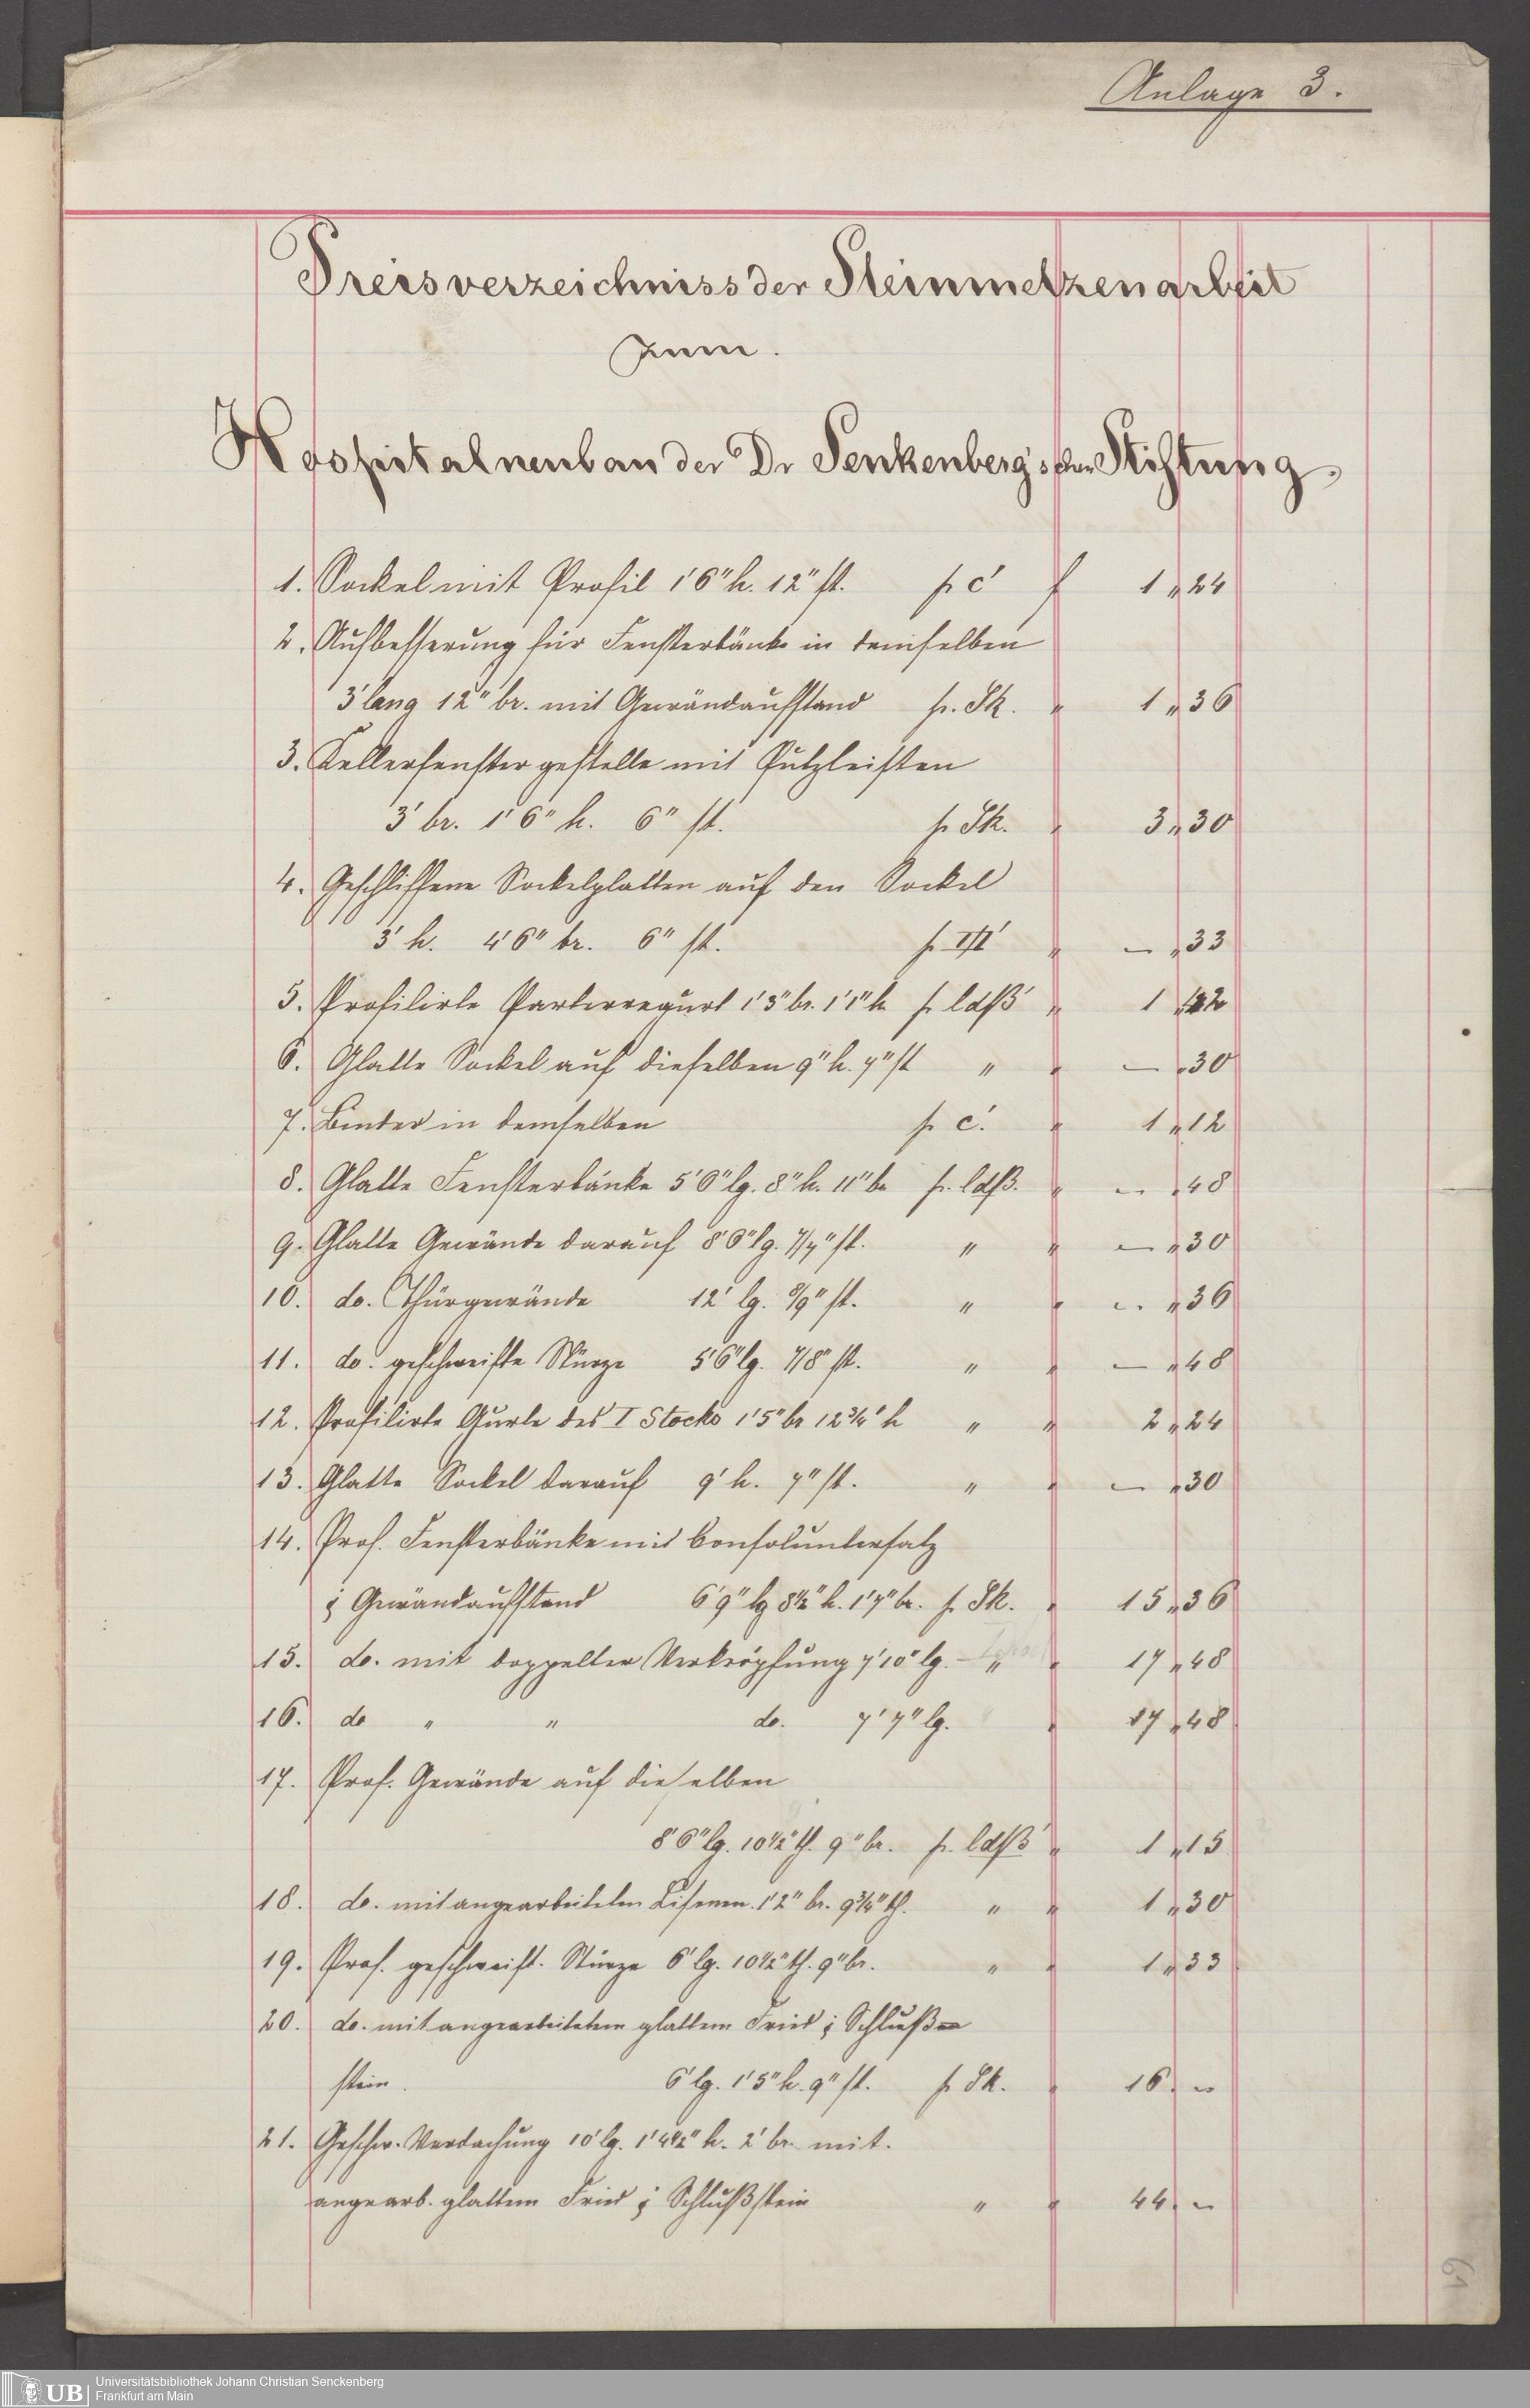 Anlage 3.
Preisverzeichniss der Steinmetzenarbeit
zum.
Hospitalneubau der Dr Senkenberg'schen Stiftung.
1. Sockel mit Profil 1'6" h. 12" st. pr c' f 1 " 24
2. Aufbesserung für Fensterbänke in demselben
3' lang 12" br. mit Gewändaufstand pr. Stk. " 1 " 36
3. Kellerfenstergestelle mit Putzleisten
3' br. 1'6" h. 6" st. pr Stk. " 3 " 30
4. Geschliffene Sockelplatten auf den Sockel
3' h. 4'6" br. 6" st. pr. " — " 33
5. Profilirte Parterregurt 1'3" br. 1'1" h pr ldfß " 1
6. Glatte Sockel auf dieselben 9" h. 7" st " " — " 30
7. Binder in demselben pr c'. " 1 " 12
8. Glatte Fensterbänke 5'6" lg. 8" h. 11" br pr. ldfß. " — " 48
9. Glatte Gewände darauf 8'6" lg. 7/7" st. " " — " 30
10. do. Thürgewände 12' lg. 8/9" st. " " — " 36
11. do. geschweifte Stürze 5'6" lg. 7/8" st. " " — " 48
12. Profilirte Gurte des I Stocks 1'5" br 12 3/4" h " " 2 " 24
13. Glatte Sockel darauf 9' h. 7" st. " " — " 30
14. Prof. Fensterbänke mit Consoluntersatz
& Gewändaufstand 6'9" lg 8 1/2" h. 1'7" br. pr. Stk. " 15 " 36
15. do. mit doppelter Verkröpfung 7'10" lg. — " " 17 " 48
16. do " " do. 7'7" lg. " 17 " 48
17. Prof. Gewände auf dieselben
8'6" lg. 10 1/2" th. 9" br. pr. ldfß " 1 " 15
18. do. mit angearbeiteten Lisenen. 1'2" br. 9 3/4" th. " " 1 " 30
19. Prof. geschweift. Stürze 6' lg. 10 1/2" th. 9" br. " " 1 " 33
20. do. mit angearbeitetem glattem Fries & Schluß=
stein. 6' lg. 1'5" h. 9" st. pr Stk. " 16 " —
21. Geschw. Verdachung 10' lg. 1'4 1/2" h. 2' br. mit.
angearb. glattem Fries & Schlußstein " " 44 " —
UB
Universitätsbibliothek Johann Christian Senckenberg
Frankfurt am Main